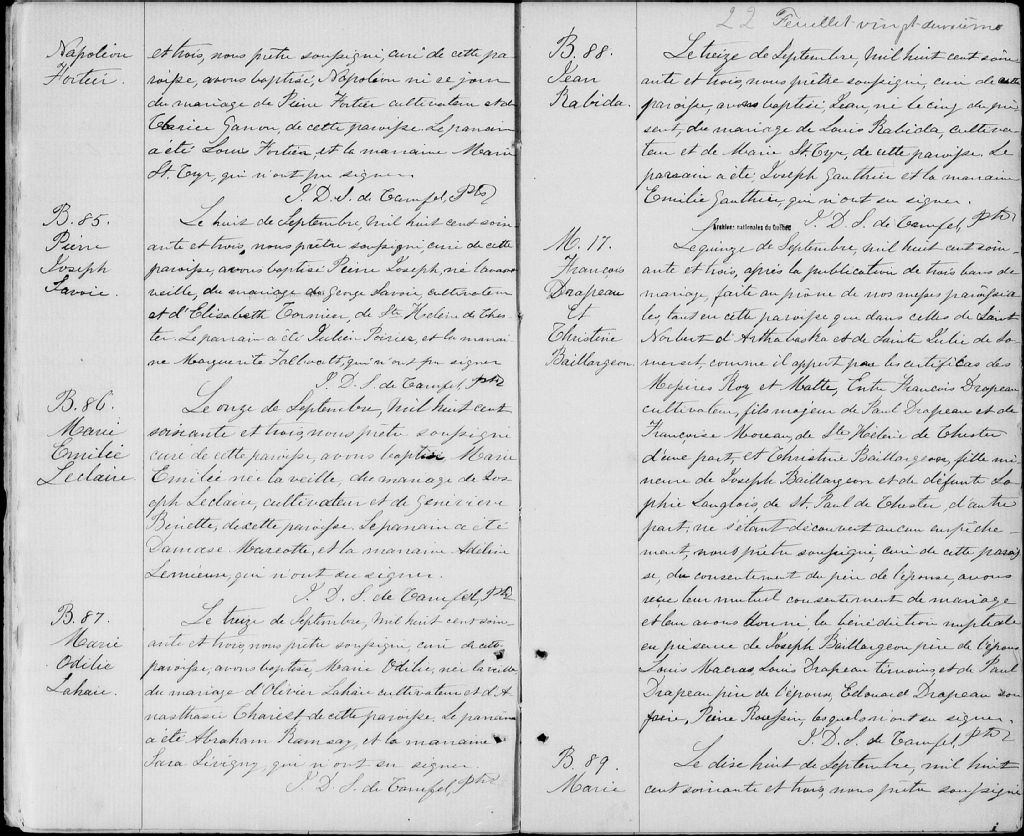 Napoléon
Fortier.
et trois, nous prêtre soussigné, curé de cette pa
roisse, avons baptisé, Napoléon né ce jour
du mariage de Pierre Fortier cultivateur et de
Ganon, de cette paroisse. Le parrain
a été Louis Fortier, et la marraine Marie
St. Cyr, qui n'ont pu signer.
J. D. S. de Ptre
B. 85.
Pierre
Joseph
Savoie.
Le huit de Septembre, mil huit cent soix
ante et trois, nous prêtre soussigné curé de cette
paroisse, avons baptisé Pierre Joseph, né l'avant
veille, du mariage de George Savoie, cultivateur
et d'Elisabeth de Ste Hélène de Ches
ter. Le parrain a été Julien Poirier, et la marrai
ne Marguerite qui n'ont pu signer
J. D. S. de Ptre
B. 86.
Marie
Emilie
Leclaire
Le onze de Septembre, mil huit cent
soixante et trois, nous prêtre soussigné
curé de cette paroisse, avons baptisé Marie
Emilie née la veille, du mariage de Jos
eph Leclaire, cultivateur et de Geneviève
de cette paroisse. Le parrain a été
Damase Marcotte, et la marraine Adéline
Lemieux, qui n'ont su signer.
J. D. S. de Ptre
B. 87.
Marie
Odélie
Lahaie.
Le treize de Septembre, mil huit cent soix
ante et trois, nous prêtre soussigné, curé de cette
paroisse, avons baptisé, Marie Odélie, née la veille
du mariage d'Olivier Lahaie cultivateur et d'A
nasthasie Charest de cette paroisse. Le parrain
a été Abraham Ramsay, et la marraine
Sara Livigny, qui n'ont su signer.
J. D. S. de Ptre
22 Feuillet vingt-deuxième
B. 88.
Jean
Rabida.
Le treize de Septembre, mil huit cent soix
ante et trois, nous prêtre soussigné, curé de cette
paroisse, avons baptisé, Jean, né le cinq du pré
sent, du mariage de Louis Rabida, cultiva
teur et de Marie St. Cyr, de cette paroisse. Le
parrain a été Joseph Gauthier et la marraine
Emilie Gauthier, qui n'ont su signer.
J. D. S. de Ptre
Archives nationales du Québec
M. 17.
François
Drapeau
et
Christine
Baillargeon.
Le quinze de Septembre, mil huit cent soix
ante et trois, après la publication de trois bans de
mariage, faite au prône de nos messes paroissia
les, tant en cette paroisse que dans celles de Saint
Norbert d'Arthabaska et de Sainte Julie de So
merset, comme il appert par les certificats des
Messires Roy et Matte, Entre François Drapeau
cultivateur, fils majeur de Paul Drapeau et de
Françoise Moreau, de Ste Hélène de Chester
d'une part, et Christine Baillargeon, fille mi
neure de Joseph Baillargeon et de défunte So
phie Langlois, de St. Paul de Chester, d'autre
part, ne s'étant découvert aucun empêche
ment, nous prêtre soussigné, curé de cette parois
se, du consentement du père de l'épouse, avons
reçu leur mutuel consentement de mariage
et leur avons donné, la bénédiction nuptiale
en présence de Joseph Baillargeon père de l'épouse
Louis Louis Drapeau témoins, et de Paul
Drapeau père de l'époux, Edouard Drapeau son
frère, Pierre lesquels n'ont su signer.
J. D. S. de Ptre
B. 89.
Marie
Le dix huit de Septembre, mil huit
cent soixante et trois, nous prêtre soussigné